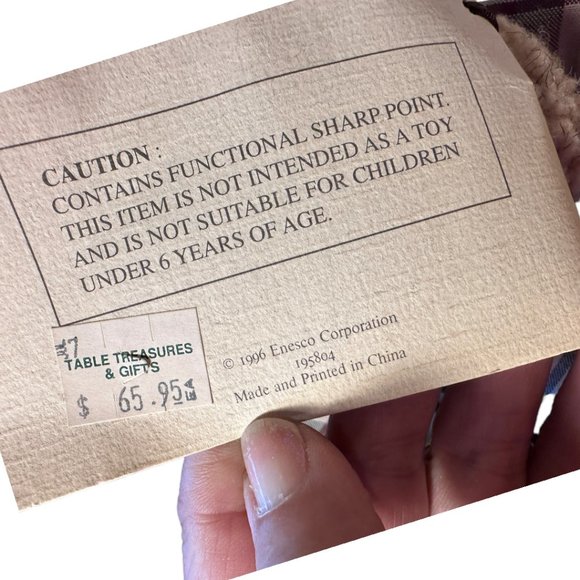 CAUTION :
CONTAINS FUNCTIONAL SHARP POINT.
THIS ITEM IS NOT INTENDED AS A TOY
AND IS NOT SUITABLE FOR CHILDREN
UNDER 6 YEARS OF AGE.
TABLE TREASURES
& GIFTS
$ 65.95
© 1996 Enesco Corporation
195804
Made and Printed in China